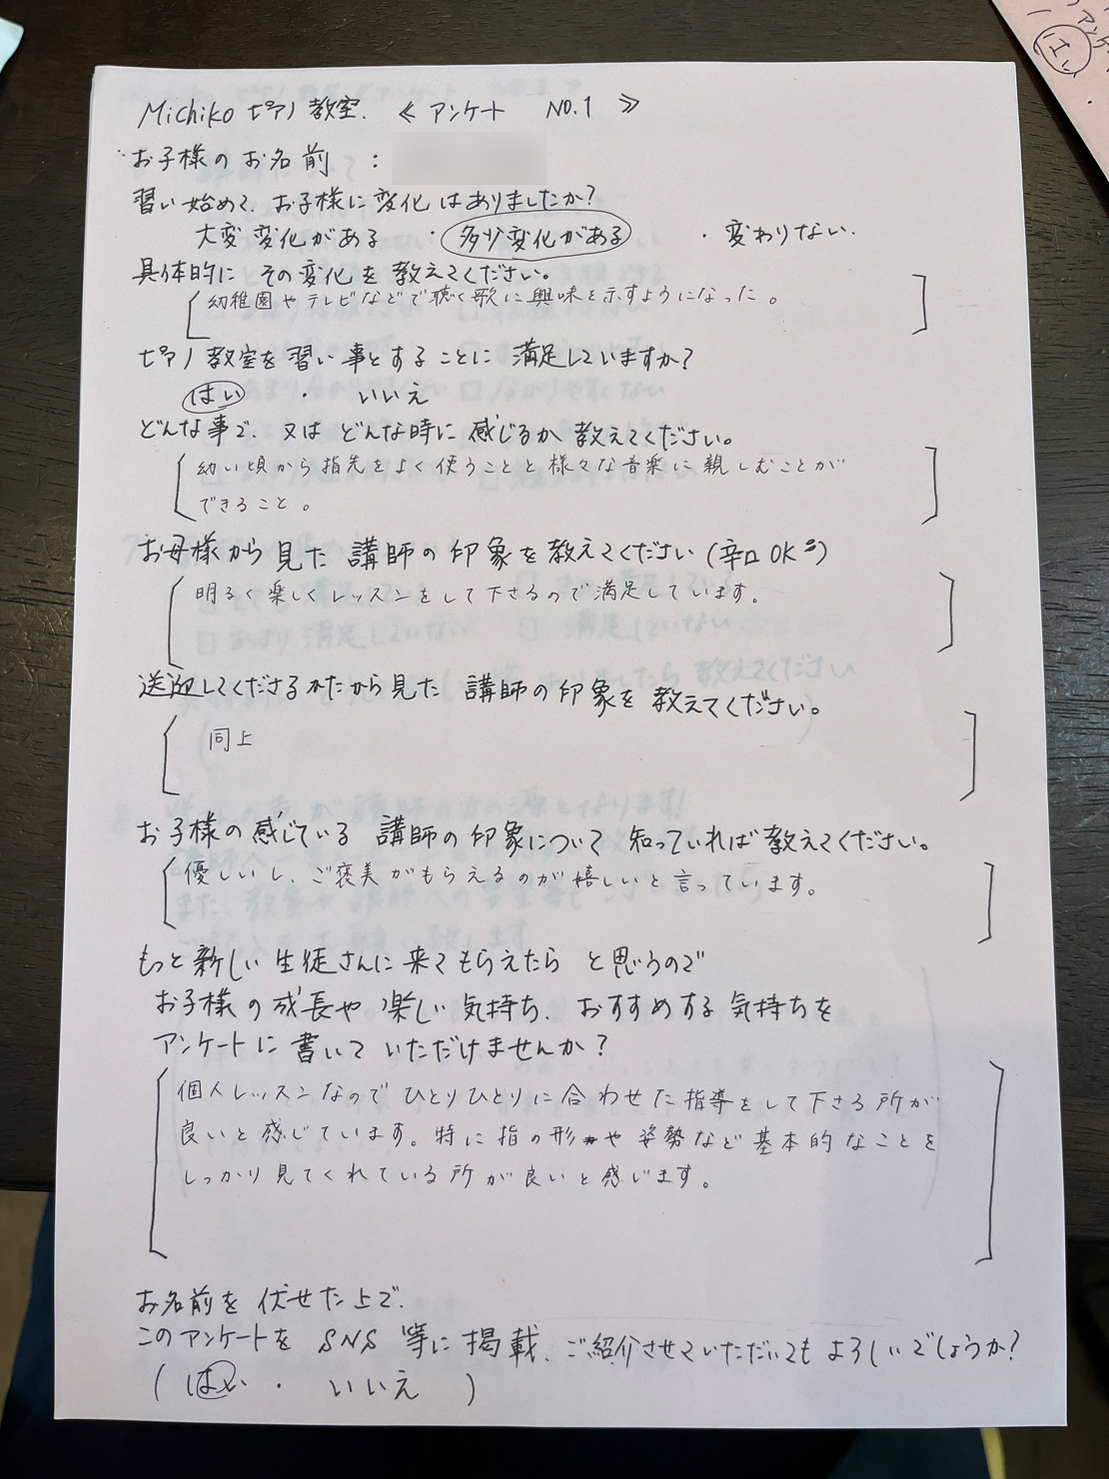 Michiko ピアノ教室. 《 アンケート NO.1 》
お子様のお名前 :
習い始めて、お子様に変化はありましたか?
大変変化がある ・ 多少変化がある ・ 変わりない.
具体的に その変化を教えてください。
幼稚園やテレビなどで聴く歌に興味を示すようになった。
ピアノ教室を習い事とすることに 満足していますか?
はい ・ いいえ
どんな事で、又は どんな時に 感じるか 教えてください。
幼い頃から指先をよく使うことと様々な音楽に親しむことが
できること。
お母様から見た 講師の印象を教えてください (辛口OK)
明るく楽しくレッスンをして下さるので満足しています。
送迎してくださるかたから見た 講師の印象を 教えてください。
同上
お子様の感じている 講師の印象について 知っていれば教えてください。
優しいし、ご褒美がもらえるのが嬉しいと言っています。
もっと新しい生徒さんに来てもらえたら と思うので
お子様の成長や楽しい気持ち、おすすめする気持ちを
アンケートに書いていただけませんか?
個人レッスンなのでひとりひとりに合わせた指導をして下さる所が
良いと感じています。特に指の形や姿勢など基本的なことを
しっかり見てくれている所が良いと感じます。
お名前を伏せた上で、
このアンケートを SNS 等に掲載、ご紹介させていただいてもよろしいでしょうか?
( はい ・ いいえ )